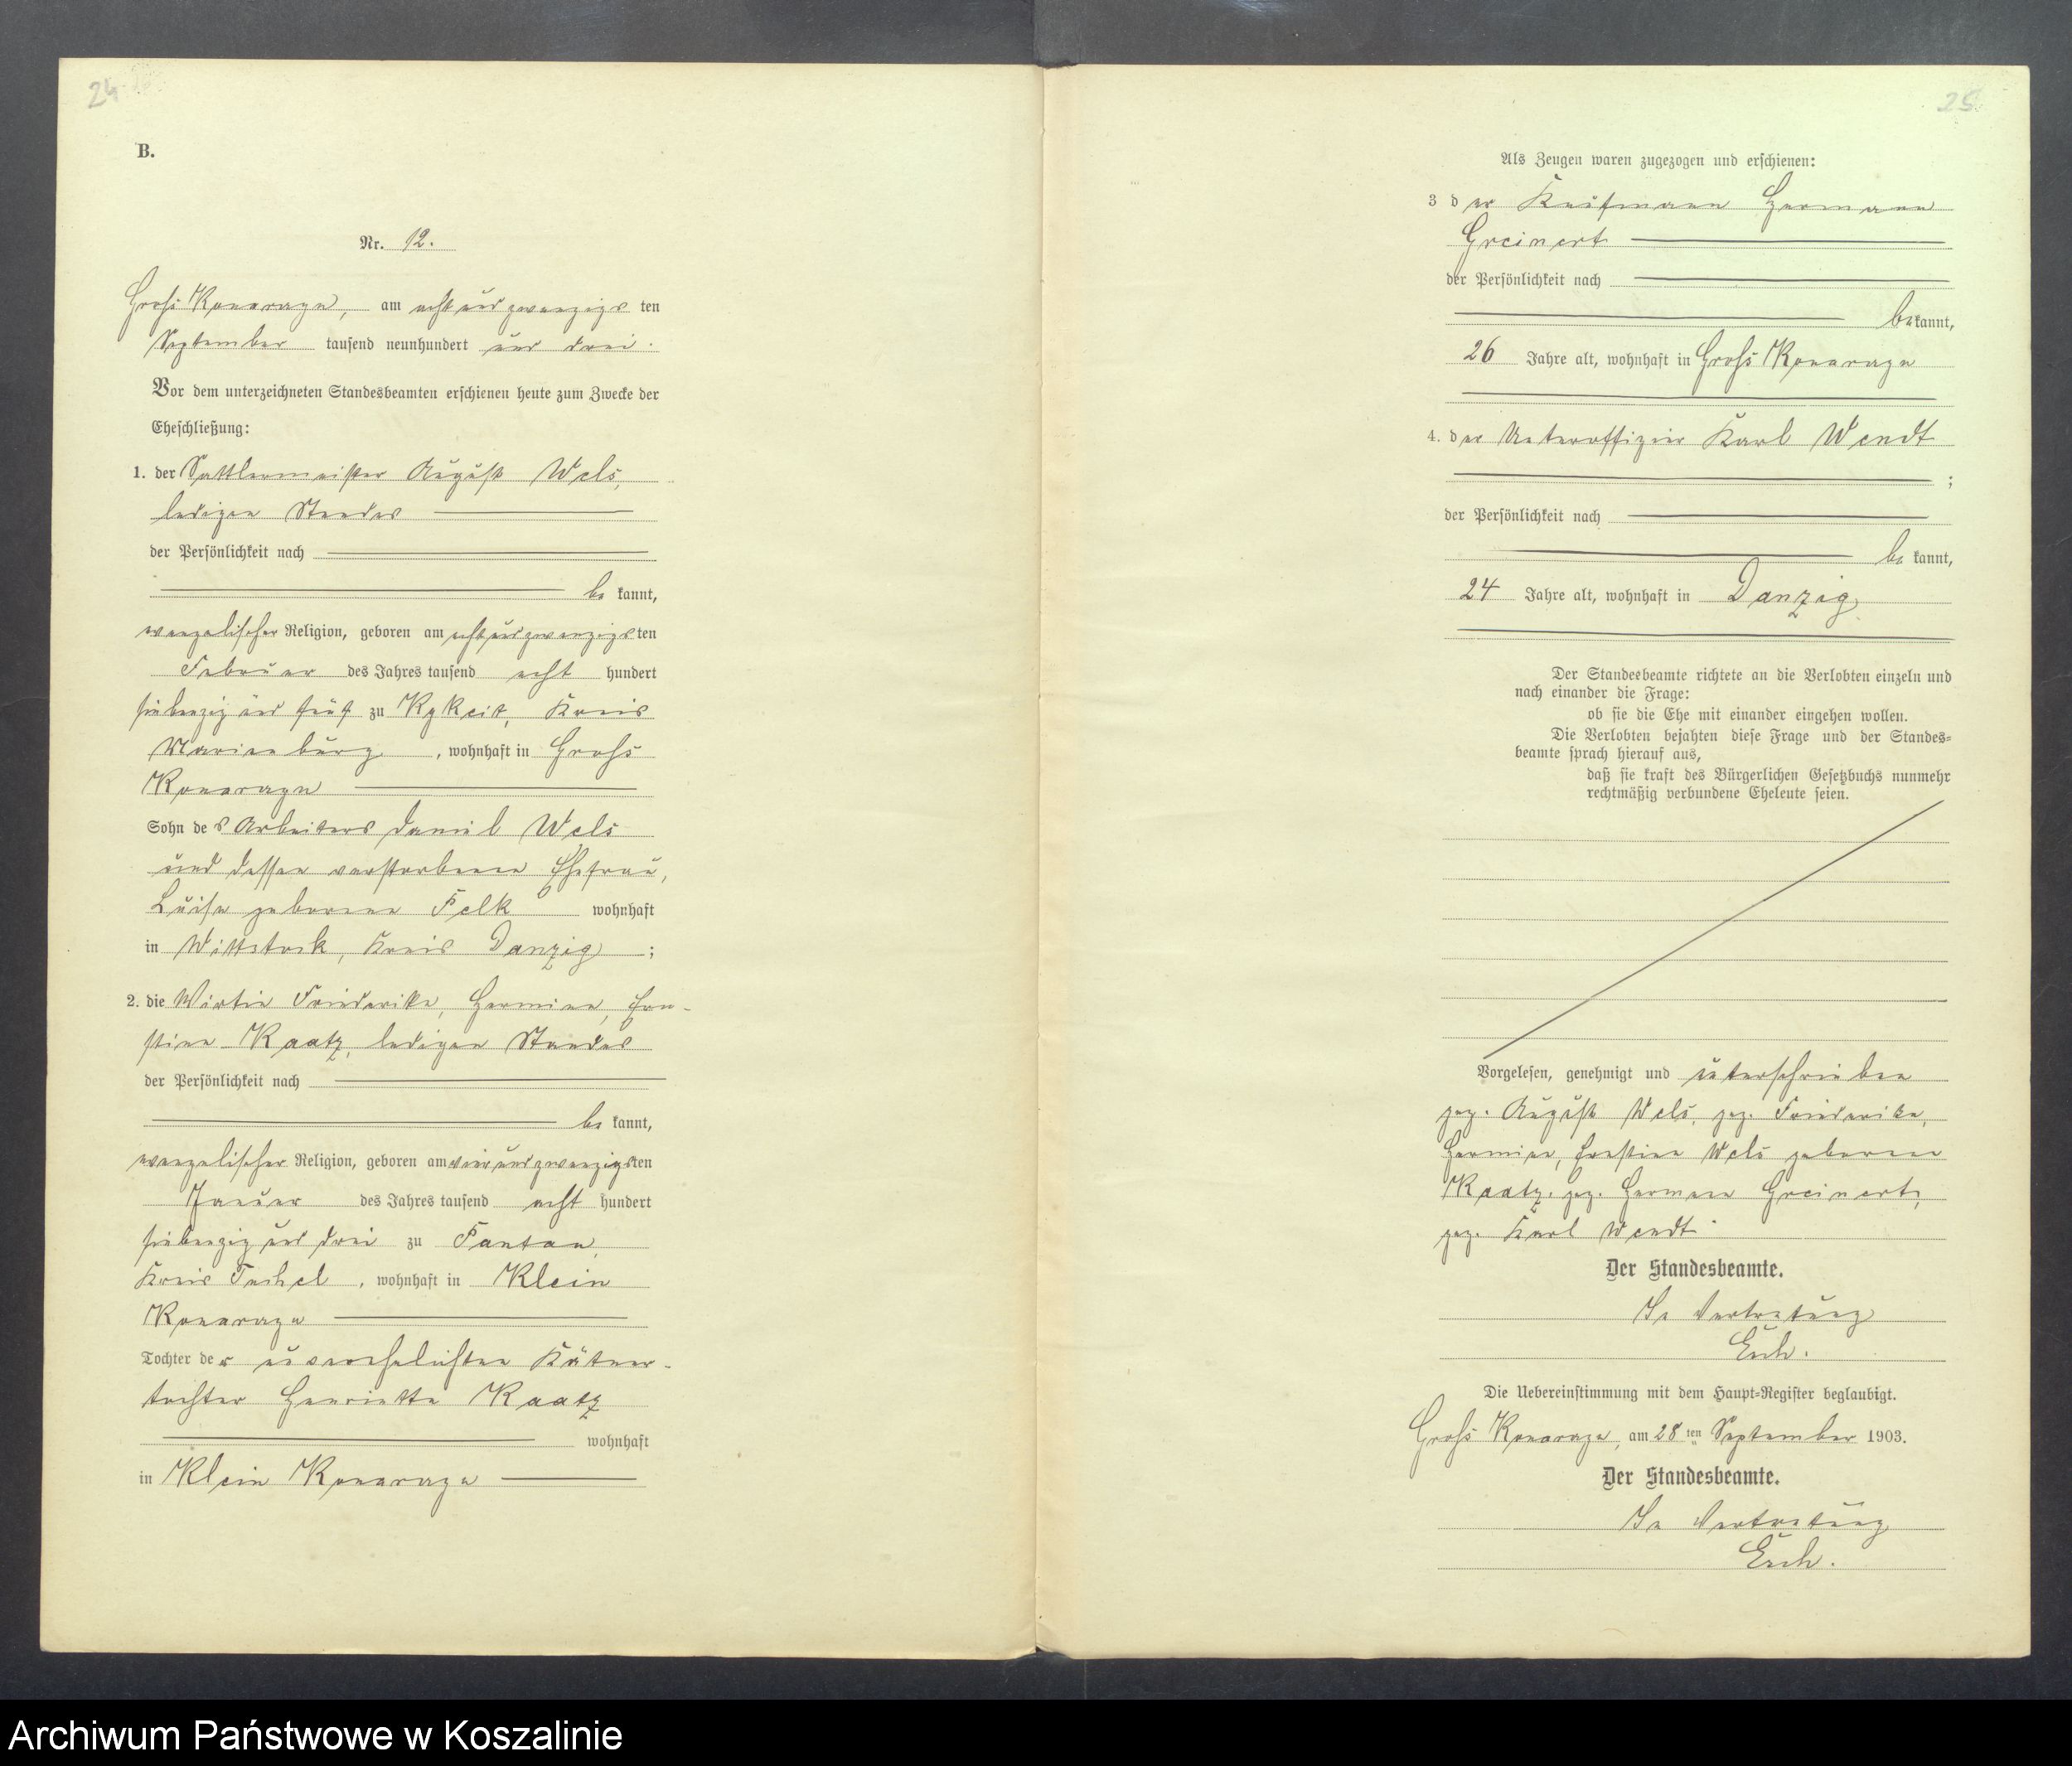 24
B.
Nr. 12.
Groß Konarzyn, am acht und zwanzigs ten
September tausend neunhundert und drei.
Vor dem unterzeichneten Standesbeamten erschienen heute zum Zwecke der
Eheschließung:
1. der Sattlermeister August Wels,
ledigen Standes
der Persönlichkeit nach
be kannt,
evangelischer Religion, geboren am acht und zwanzigs ten
Februar des Jahres tausend acht hundert
siebenzig und fünf zu Kykoit, Kreis
Marienburg, wohnhaft in Groß
Konarzyn
Sohn des Arbeiters Daniel Wels
und dessen verstorbenen Ehefrau,
Luise geborene Felk wohnhaft
in Wittstock, Kreis Danzig;
2. die Wirtin Friederike, Hermine, Ern-
stine Kaatz, ledigen Standes
der Persönlichkeit nach
be kannt,
evangelischer Religion, geboren am vier und zwanzigsten
Januar des Jahres tausend acht hundert
siebenzig und drei zu
Kreis Tuchel, wohnhaft in Klein
Konarzyn
Tochter der unverehelichten Kätner-
tochter Henriette Kaatz
wohnhaft
in Klein Konarzyn
25
Als Zeugen waren zugezogen und erschienen:
3 der Kaufmann Hermann
Greinert
der Persönlichkeit nach
bekannt,
26 Jahre alt, wohnhaft in Groß Konarzyn
4. der Unteroffizier Karl Wendt
;
der Persönlichkeit nach
be kannt,
24 Jahre alt, wohnhaft in Danzig.
Der Standesbeamte richtete an die Verlobten einzeln und
nach einander die Frage:
ob sie die Ehe mit einander eingehen wollen.
Die Verlobten bejahten diese Frage und der Standes-
beamte sprach hierauf aus,
daß sie kraft des Bürgerlichen Gesetzbuchs nunmehr
rechtmäßig verbundene Eheleute seien.
Vorgelesen, genehmigt und unterschrieben
gez. August Wels, gez. Friederike,
Hermine, Ernstine Wels geborene
Kaatz. gez. Hermann Greinert,
gez. Karl Wendt.
Der Standesbeamte.
In Vertretung
Die Uebereinstimmung mit dem Haupt-Register beglaubigt.
Groß Konarzyn, am 28 ten September 1903.
Der Standesbeamte.
In Vertretung
Archiwum Państwowe w Koszalinie